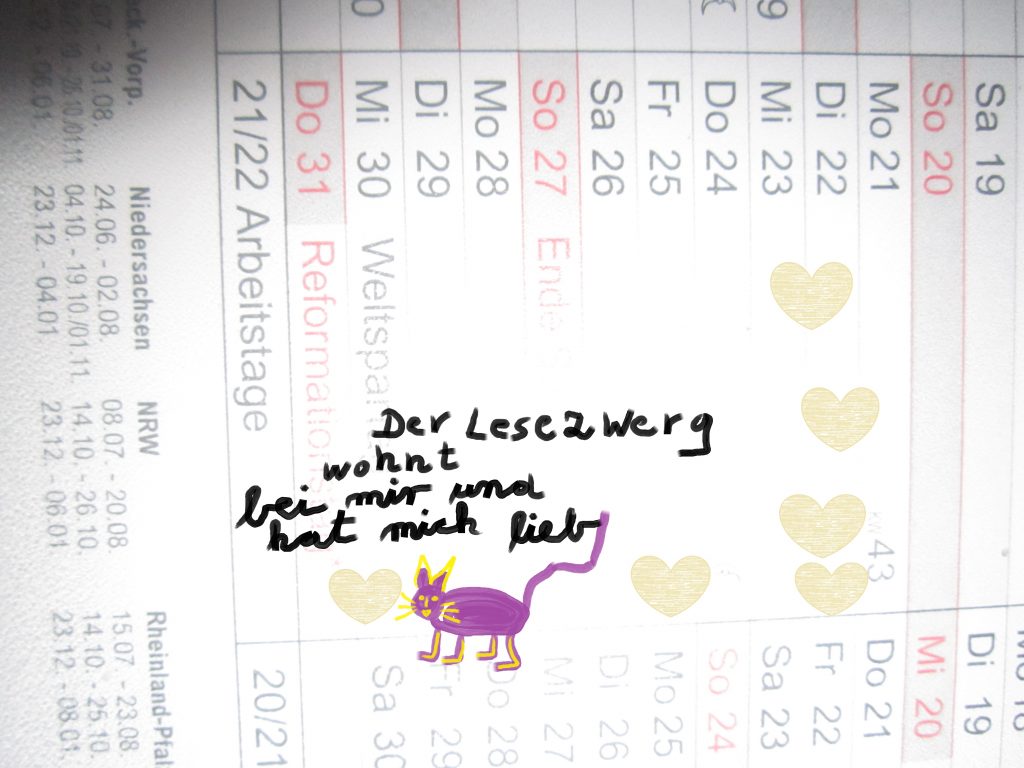 Der Lesezwerg
wohnt
bei mir und
hat mich lieb
Sa 19
So 20
Mo 21 43
Di 22
Mi 23
Do 24
Fr 25
Sa 26
So 27 Ende
Mo 28
Di 29
Mi 30 Weltspa
Do 31 Reformations
21/22 Arbeitstage
Di 19
Mi 20
Do 21
Fr 22
Sa 23
So 24
Mo 25
Di 26
Mi 27
Do 28
Fr 29
Sa 30
20/21
.-Vorp.
- 31.08.
- 06.01.
Niedersachsen
24.06. - 02.08.
04.10. - 19.10./01.11.
23.12. - 04.01.
NRW
08.07. - 20.08.
14.10. - 26.10.
23.12. - 06.01
Rheinland-Pfal
15.07. - 23.08.
14.10. - 25.10.
23.12. - 08.01.